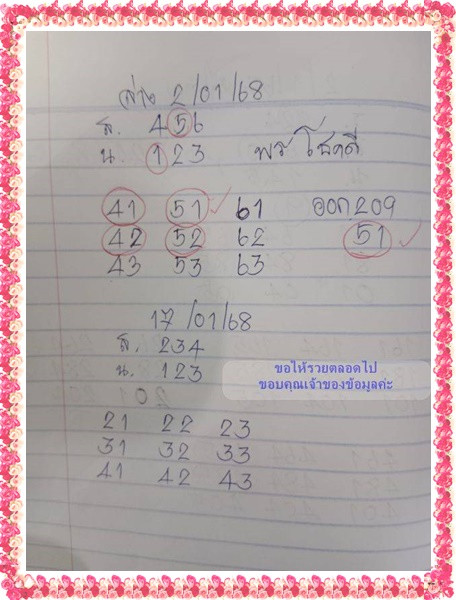 ล่าง 2/01/68
ส. 456
น. 123 พร โชคดี
41 51 61 ออก209
42 52 62 51
43 53 63
17/01/68
ส. 234
น. 123
ขอให้รวยตลอดไป
ขอบคุณเจ้าของข้อมูลค่ะ
21 22 23
31 32 33
41 42 43